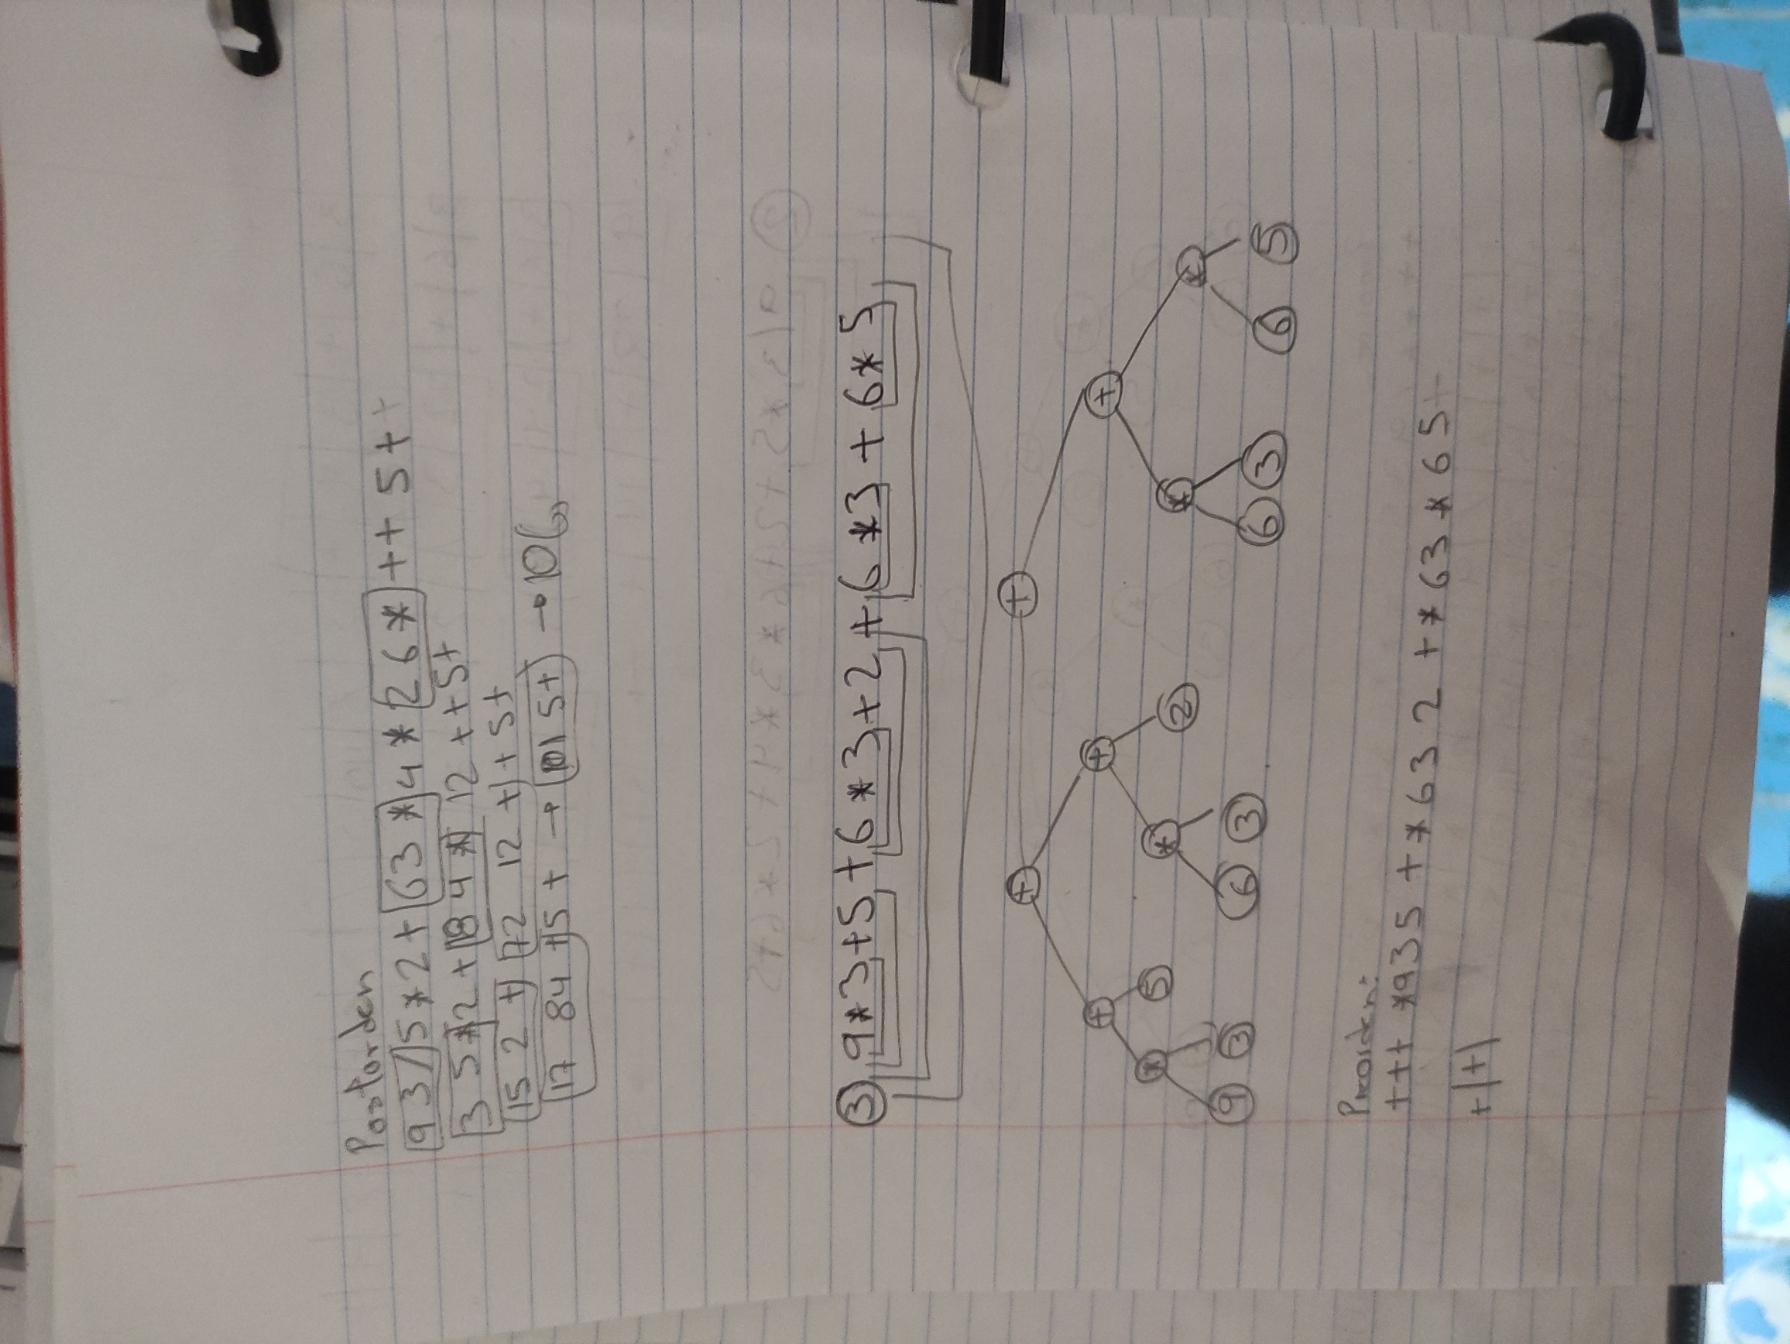 Postorden
9 3 / 5 * 2 + 6 3 * 4 * 2 6 * + + 5 + +
3 5 * 2 + 18 4 * 12 + + 5 +
15 2 + 72 12 + + 5 +
17 84 + 5 + → 101 5 + → 106
② 9/3*5+2+6*3*4+2*6+5
③ 9*3+5+6*3+2+6*3+6*5
+ +
+ + +
* 5 * 2 * *
9 3 6 3 6 3 6 5
Preorden:
+++ *935 + *63 2 + *63 * 65
+/+/